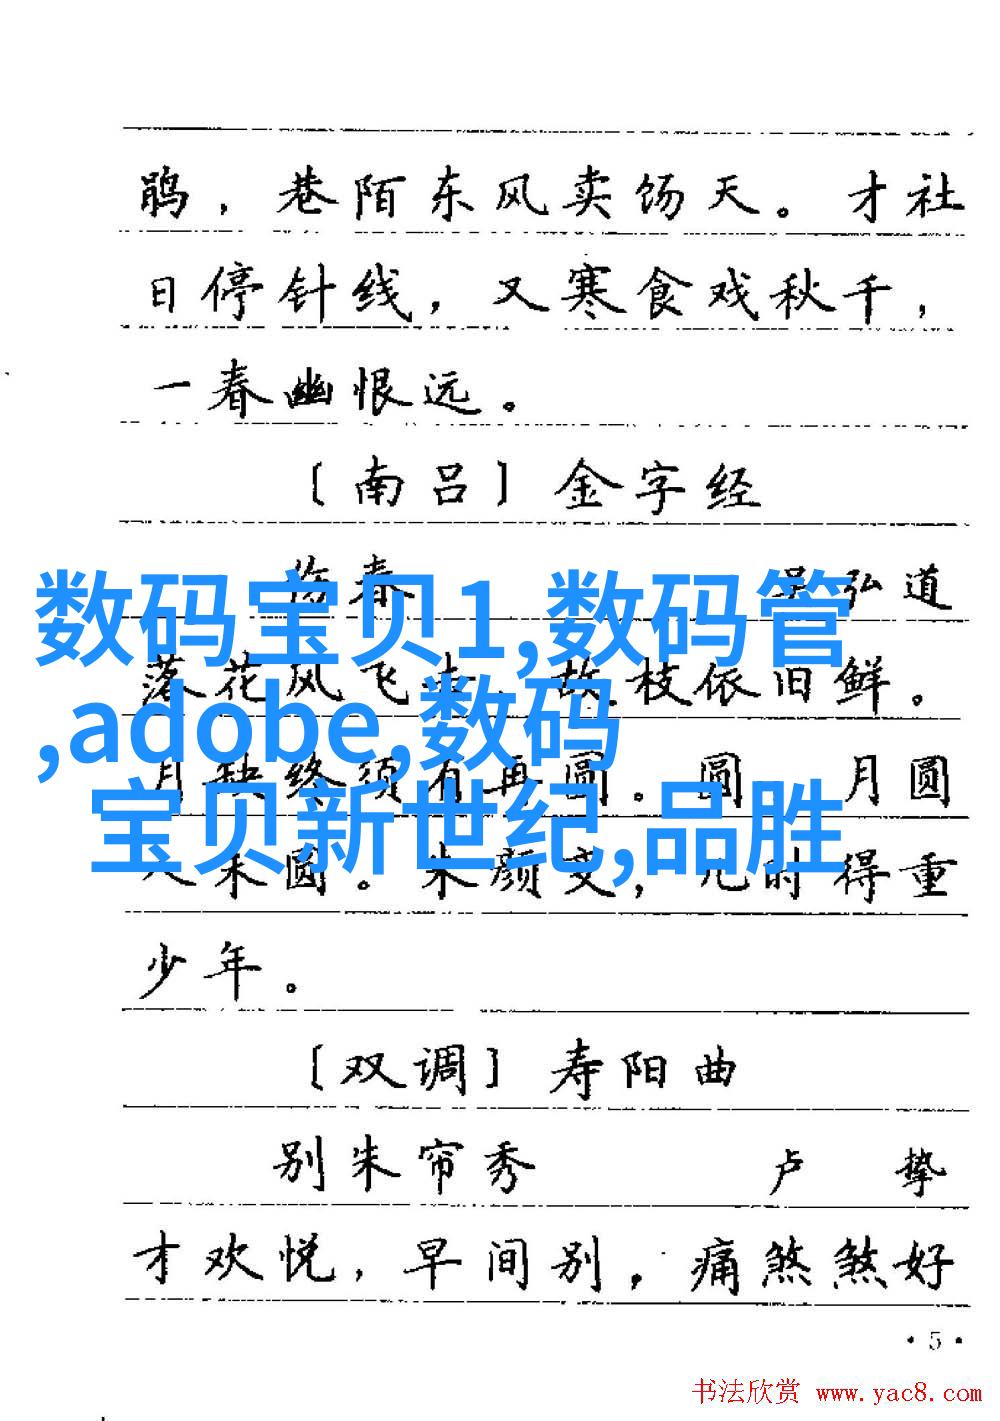 鹃，巷陌东风卖饧天。才社
日停针线，又寒食戏秋千，
一春幽恨远。
〔南吕〕金字经
伤春 吴弘道
数码宝贝1,数码管
落花风飞去，故枝依旧鲜。
,adobe,数码
月缺终须有再圆。圆 月圆
宝贝新世纪,品胜
人未圆。朱颜变，几时得重
少年。
〔双调〕寿阳曲
别朱帘秀 卢挚
才欢悦，早间别，痛煞煞好
·5·
书法欣赏 www.yac8.com